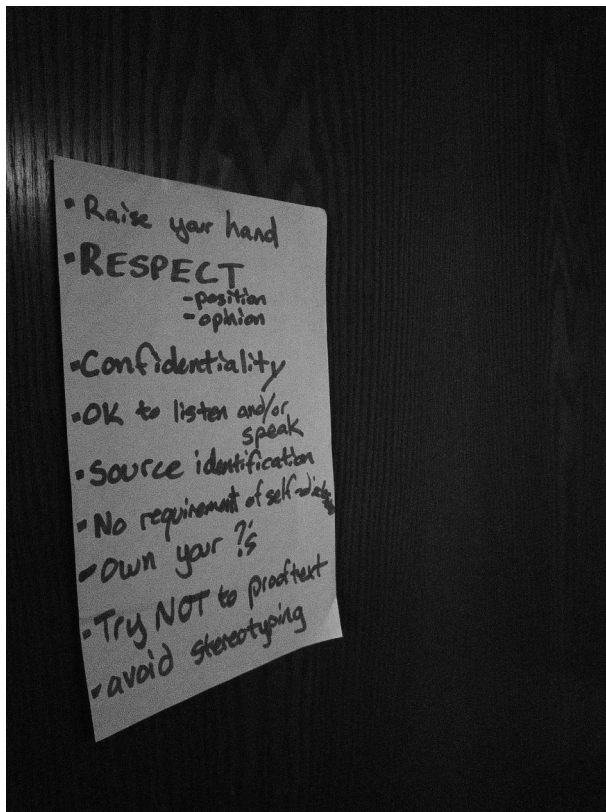 • Raise your hand
• RESPECT
- position
- opinion
• Confidentiality
• OK to listen and/or
speak
• Source identification
• No requirement of self-
• Own your ?'s
• Try NOT to prooftext
• avoid stereotyping